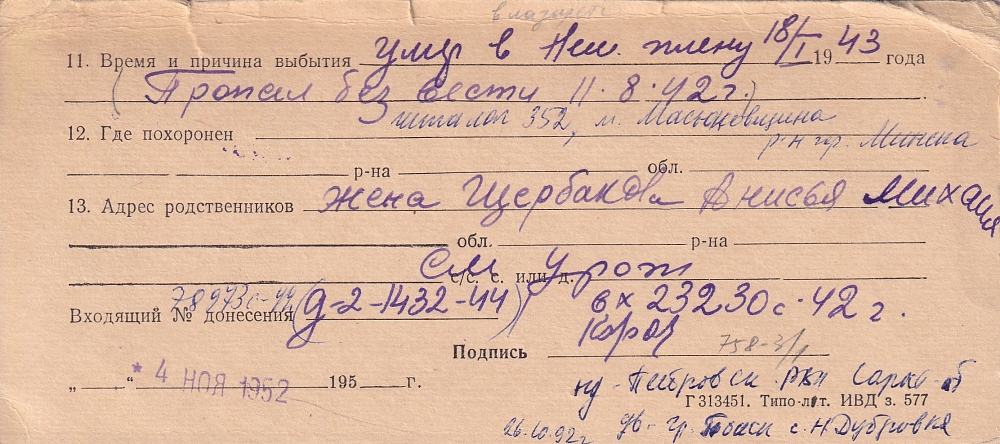 в лазарете
11. Время и причина выбытия умер в нем. плену 18/I 1943 года
(Пропал без вести 11.8.42 г.)
12. Где похоронен шталаг 352, м. Масюковщина
р-н гор. Минска
р-на обл.
13. Адрес родственников жена Щербакова Анисья Михайл
обл. р-на
с/с. с. или д. См урож
78973с-42
Входящий № донесения (д-2-1432-44) вх 23230с.42 г.
Подпись 758-3/1
„ “ * 4 НОЯ 1952 195 г.
Петровск. РВК Сарат. об
Г 313451. Типо-лит. ИВД з. 577
26.10.92г гр. с. Н. Дубровка